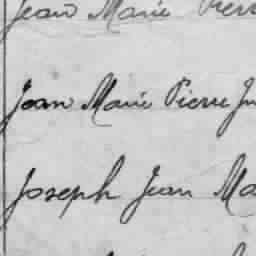 Jean Marie Pierre
Jean Marie Pierre
Joseph Jean Ma